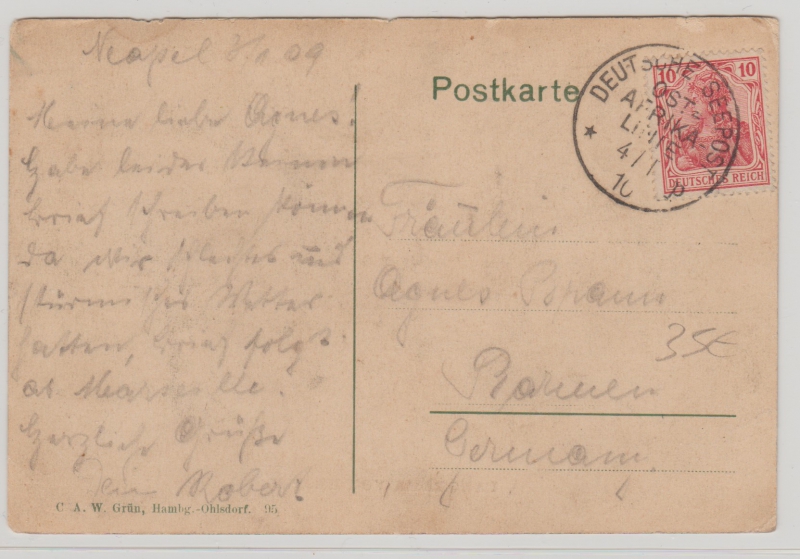 Neapel 7/1 09
Meine liebe Agnes.
Habe leider keinen
brief schreiben können
da wir schlechtes und
stürmisches Wetter
hatten, brief folgt
ab Marseille.
Herzliche Grüße
Dein Robert
C. A. W. Grün, Hambg.-Ohlsdorf. 95.
Postkarte
DEUTSCHE SEEPOST
OST-
AFRIKA-
LINIE
4/1
10 10
DEUTSCHES REICH
Fräulein
Agnes Braun
Barmen
Germany
35€